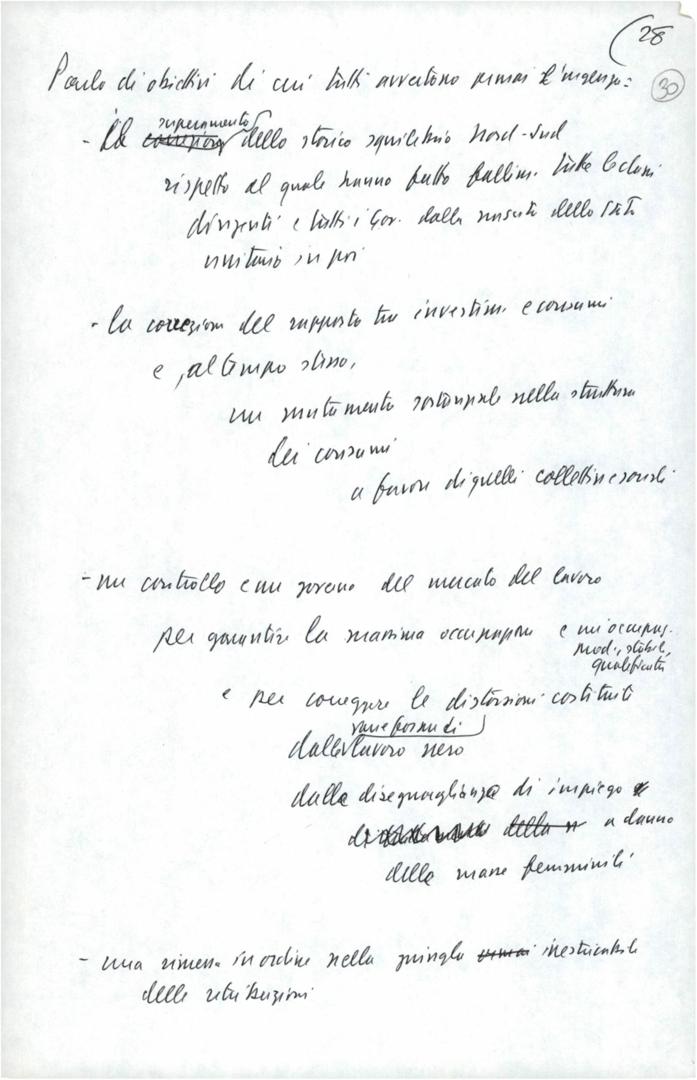 28
30
Parlo di obiettivi di cui tutti avvertono ormai l'urgenza:
superamento
- Il correzione dello storico squilibrio Nord-Sud
rispetto al quale hanno fatto fallim. tutte le classi
dirigenti e tutti i Gov. dalla nascita dello Stato
unitario in poi
- la correzione del rapporto tra investim. e consumi
e, al tempo stesso,
un mutamento sostanziale nella struttura
dei consumi
a favore di quelli collettivi e sociali
- un controllo e un governo del mercato del lavoro
per garantire la massima occupazione e un'occupaz.
prod., stabile,
qualificata
e per correggere le distorsioni costituite
varie forme di
dalle lavoro nero
dalla diseguaglianza di impiego
della a danno
delle masse femminili
- una rimessa in ordine nella giungla ormai inestricabile
delle retribuzioni